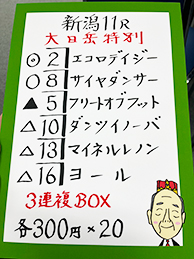 新潟11R
大日岳特別
◎ 2 エコロデイジー
○ 8 サイヤダンサー
▲ 5 フリートオブフット
△ 10 ダンツイノーバ
△ 13 マイネルレノン
△ 16 ヨール
3連複BOX
各300円×20